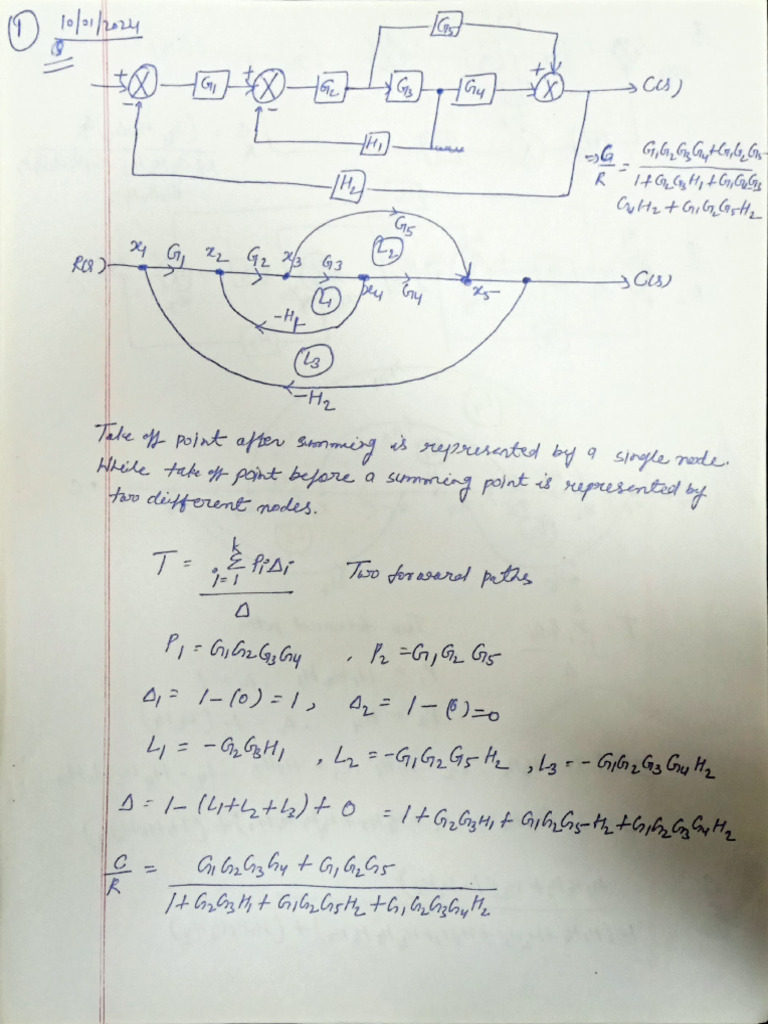 ① 10/01/2024
Q
G5
+ X G1 + X G2 G3 G4 + X C(s)
- - H1
H2
=> G/R = G1G2G3G4+G1G2G5 / 1+G2G3H1+G1G2G3
G4H2 + G1G2G5H2
G5
R(s) x1 G1 x2 G2 x3 G3 x4 G4 x5 C(s)
L2
L1
-H1
L3
-H2
Take off point after summing is represented by a single node.
While take off point before a summing point is represented by
two different nodes.
T = k Σ i=1 PiΔi / Δ Two forward paths
P1 = G1G2G3G4 , P2 = G1G2 G5
Δ1 = 1-(0) = 1, Δ2 = 1-(0)=0
L1 = -G2G3H1 , L2 = -G1G2G5 H2 , L3 = -G1G2G3G4H2
Δ = 1-(L1+L2+L3) + 0 = 1+G2G3H1+G1G2G5H2+G1G2G3G4H2
C/R = G1G2G3G4 + G1G2G5 / 1+G2G3H1+G1G2G5H2+G1G2G3G4H2